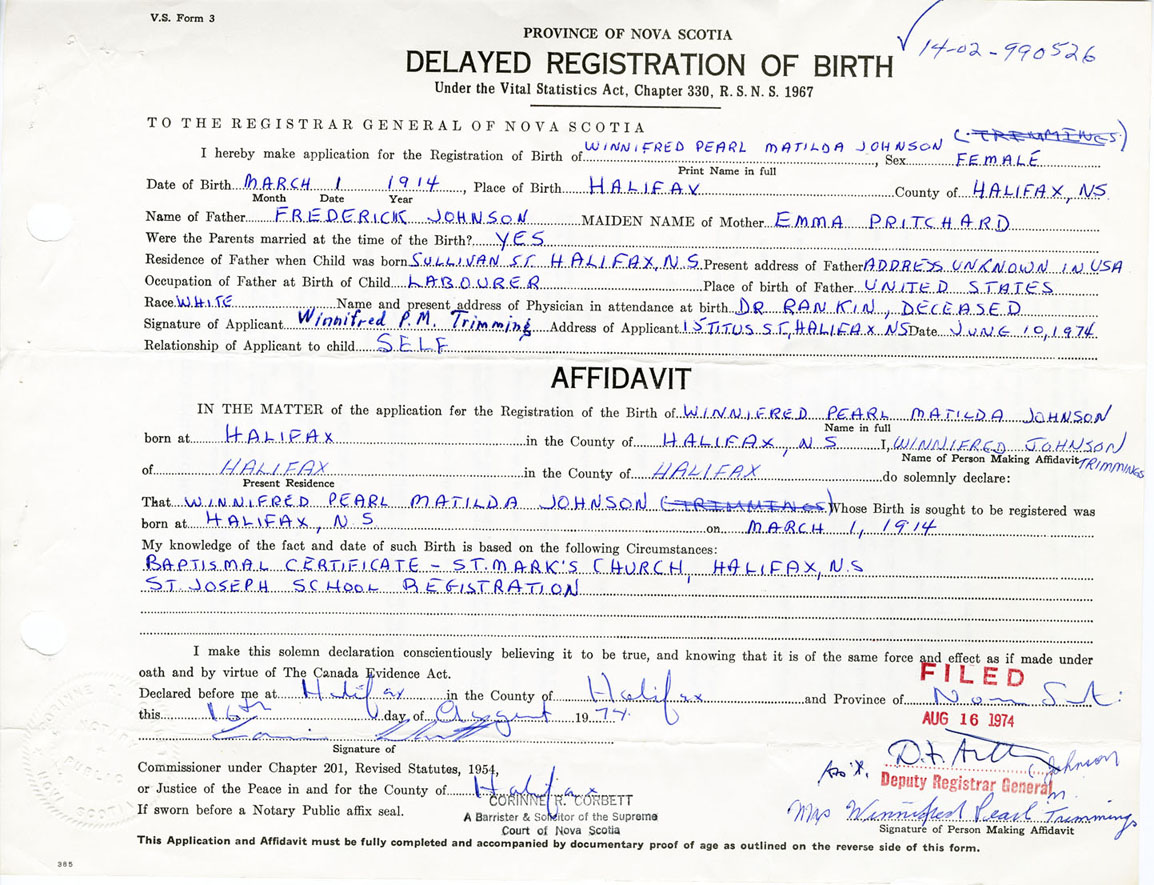 V.S. Form 3
14-02-990526
PROVINCE OF NOVA SCOTIA
DELAYED REGISTRATION OF BIRTH
Under the Vital Statistics Act, Chapter 330, R.S.N.S. 1967
TO THE REGISTRAR GENERAL OF NOVA SCOTIA
I hereby make application for the Registration of Birth of WINNIFRED PEARL MATILDA JOHNSON (TRIMMINGS), Sex FEMALE
Print Name in full
Date of Birth MARCH 1 1914, Place of Birth HALIFAX County of HALIFAX, NS
Month Date Year
Name of Father FREDERICK JOHNSON MAIDEN NAME of Mother EMMA PRITCHARD
Were the Parents married at the time of the Birth? YES
Residence of Father when Child was born SULLIVAN ST. HALIFAX, N.S. Present address of Father ADDRESS UNKNOWN IN USA
Occupation of Father at Birth of Child LABOURER Place of birth of Father UNITED STATES
Race WHITE Name and present address of Physician in attendance at birth DR RANKIN, DECEASED
Signature of Applicant Winnifred P.M. Trimming Address of Applicant 15 TITUS ST, HALIFAX NS Date JUNE 10, 1974
Relationship of Applicant to child SELF
AFFIDAVIT
IN THE MATTER of the application for the Registration of the Birth of WINNIFRED PEARL MATILDA JOHNSON
Name in full
born at HALIFAX in the County of HALIFAX, NS I, WINNIFRED JOHNSON
Name of Person Making Affidavit TRIMMINGS
of HALIFAX in the County of HALIFAX do solemnly declare:
Present Residence
That WINNIFRED PEARL MATILDA JOHNSON (TRIMMINGS) Whose Birth is sought to be registered was
born at HALIFAX, NS on MARCH 1, 1914
My knowledge of the fact and date of such Birth is based on the following Circumstances:
BAPTISMAL CERTIFICATE - ST. MARK'S CHURCH, HALIFAX, N.S
ST. JOSEPH SCHOOL REGISTRATION
I make this solemn declaration conscientiously believing it to be true, and knowing that it is of the same force and effect as if made under
oath and by virtue of The Canada Evidence Act.
FILED
Declared before me at Halifax in the County of Halifax and Province of Nova Scotia
this 16th day of August 1974.
AUG 16 1974
Signature of
Commissioner under Chapter 201, Revised Statutes, 1954,
Deputy Registrar General
(Johnson)
or Justice of the Peace in and for the County of Halifax
CORINNE R. CORBETT
If sworn before a Notary Public affix seal.
A Barrister & Solicitor of the Supreme
Court of Nova Scotia
Mrs Winnifred Pearl M. Trimmings
Signature of Person Making Affidavit
This Application and Affidavit must be fully completed and accompanied by documentary proof of age as outlined on the reverse side of this form.
385